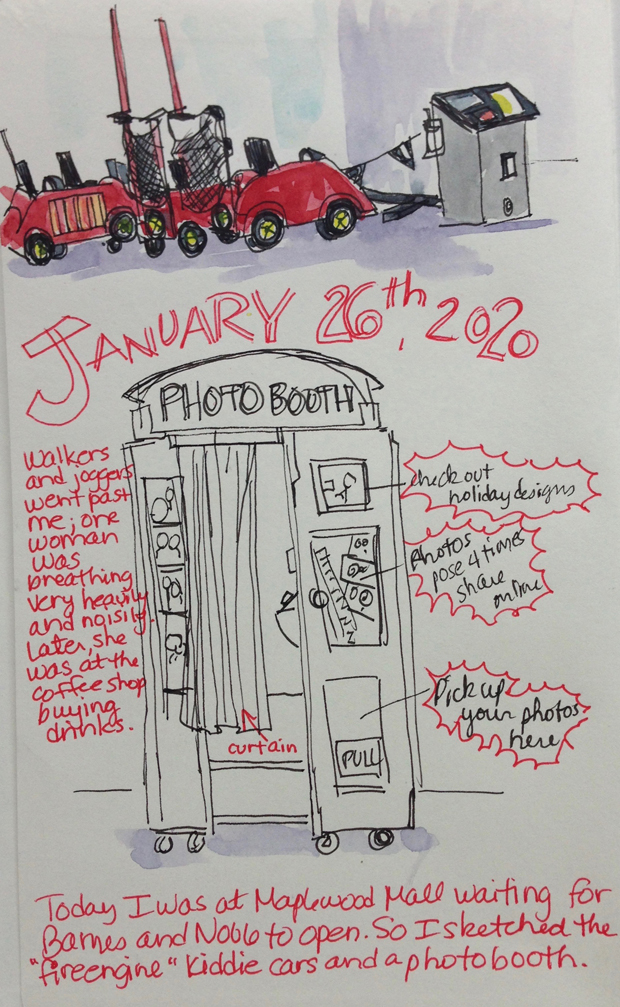 JANUARY 26th, 2020
PHOTO BOOTH
Walkers
and joggers
went past
me; one
woman
was
breathing
very heavily
and noisily.
Later, she
was at the
coffee shop
buying
drinks.
check out
holiday designs
Photos
pose 4 times
share
online
Pick up
your photos
here
PULL
curtain
Today I was at Maplewood Mall waiting for
Barnes and Nobb to open. So I sketched the
"fireengine" kiddie cars and a photobooth.